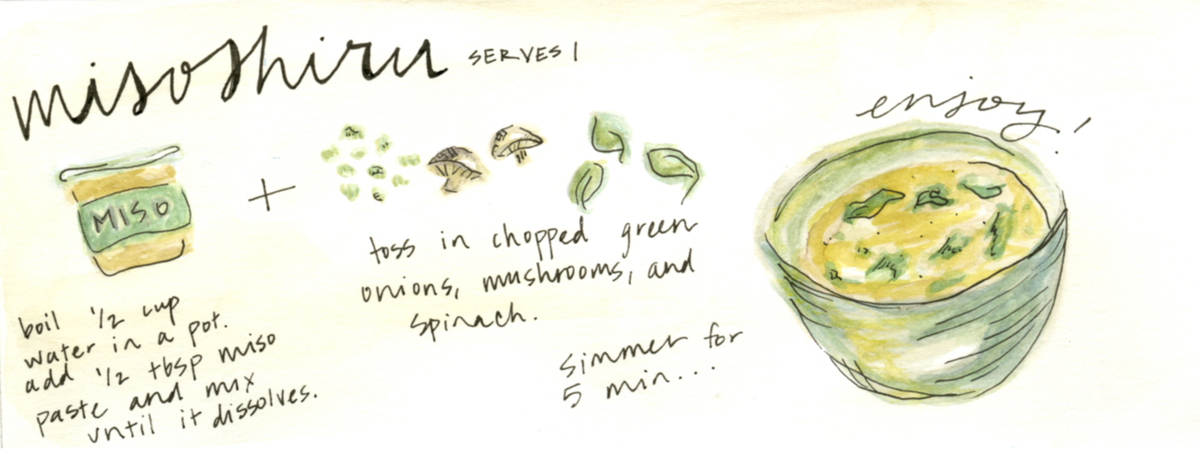 misoshiru SERVES 1
MISO
+
boil 1/2 cup
water in a pot.
add 1/2 tbsp miso
paste and mix
until it dissolves.
toss in chopped green
onions, mushrooms, and
spinach.
simmer for
5 min...
enjoy!